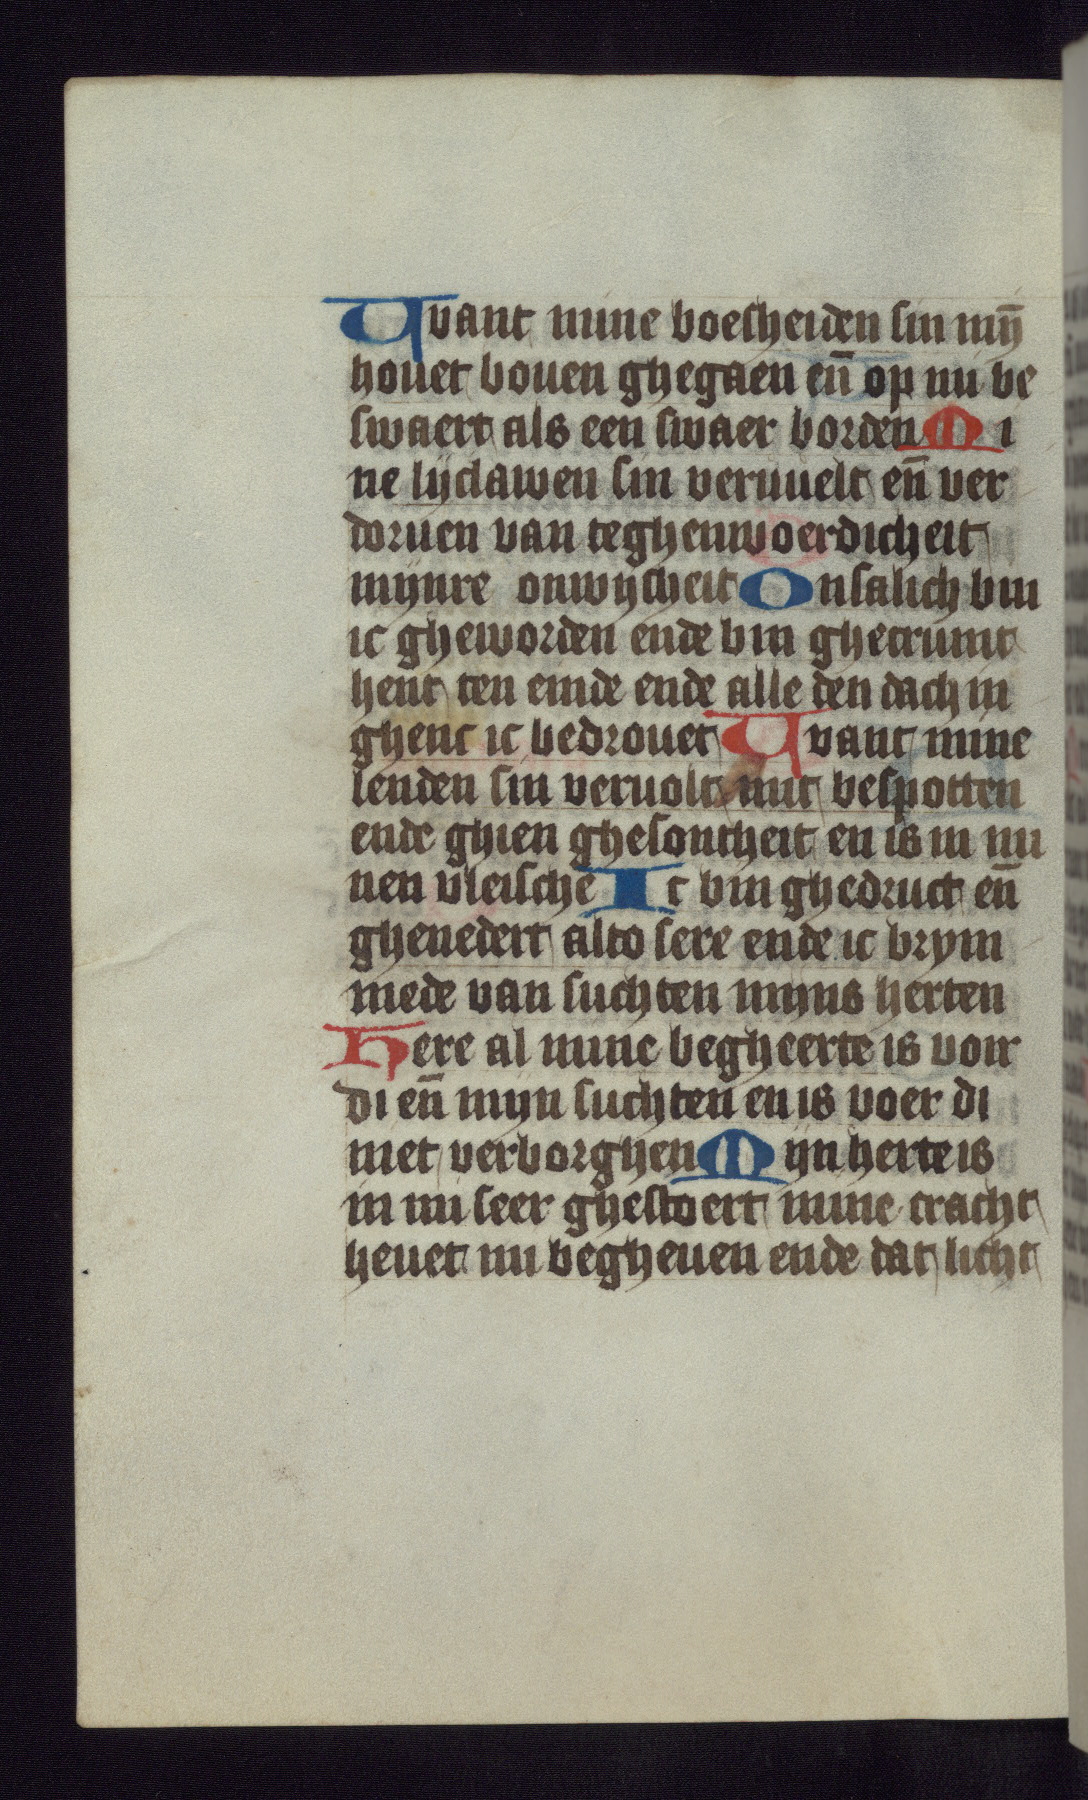 Want mine boesheiden sin mȳ
houet bouen ghegaen en̄ op mi be
swaert als een swaer borden Mi
ne lijclawen sin veruuelt en̄ ver
doruen van teghenwoerdicheit
mijnre onwijsheit Onsalich bin
ic gheworden ende bin ghecrumt
hent ten einde ende alle den dach in
ghenc ic bedrouet Want mine
lenden sin veruolt mit bespotten
ende ghien ghesontheit en is in mi
nen vleische Ic bin ghedruct en̄
ghenedert alto sere ende ic brym
mede van suchten mijns herten
Here al mine begheerte is voir
di en̄ mijn suchten en is voer di
niet verborghen Mijn herte is
in mi seer ghestoert mine cracht
heuet mi begheuen ende dat licht